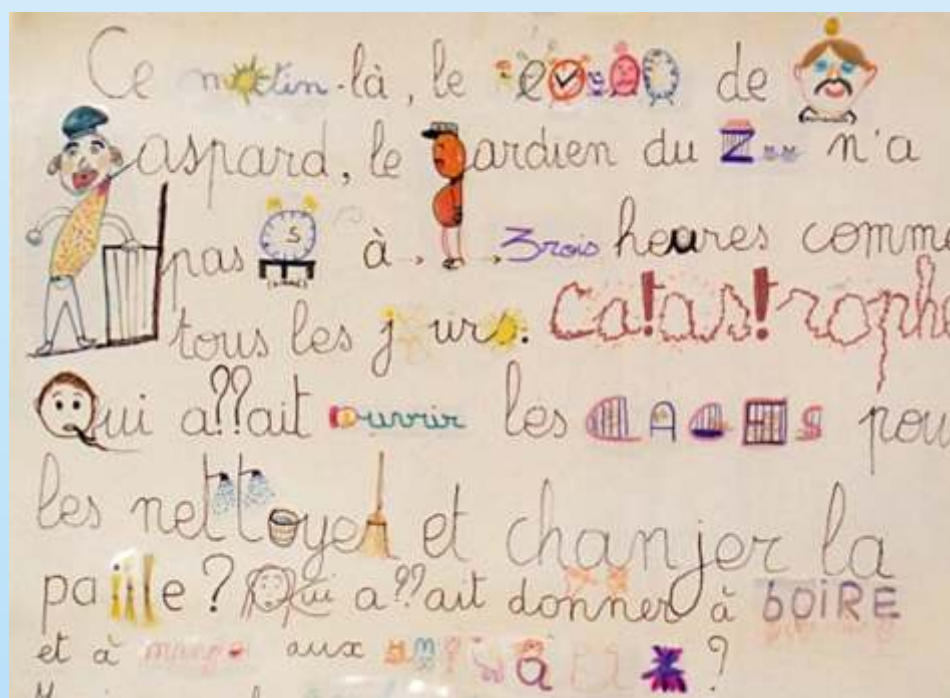 Ce matin-là, le de
Gaspard, le gardien du Zoo n'a
pas à 3rois heures comme
tous les jours. Catastroph
Qui a??ait ouvrir les CAGES pou
les nettoyer et chanjer la
paille ? Qui a??ait donner à BOIRE
et à manger aux ?